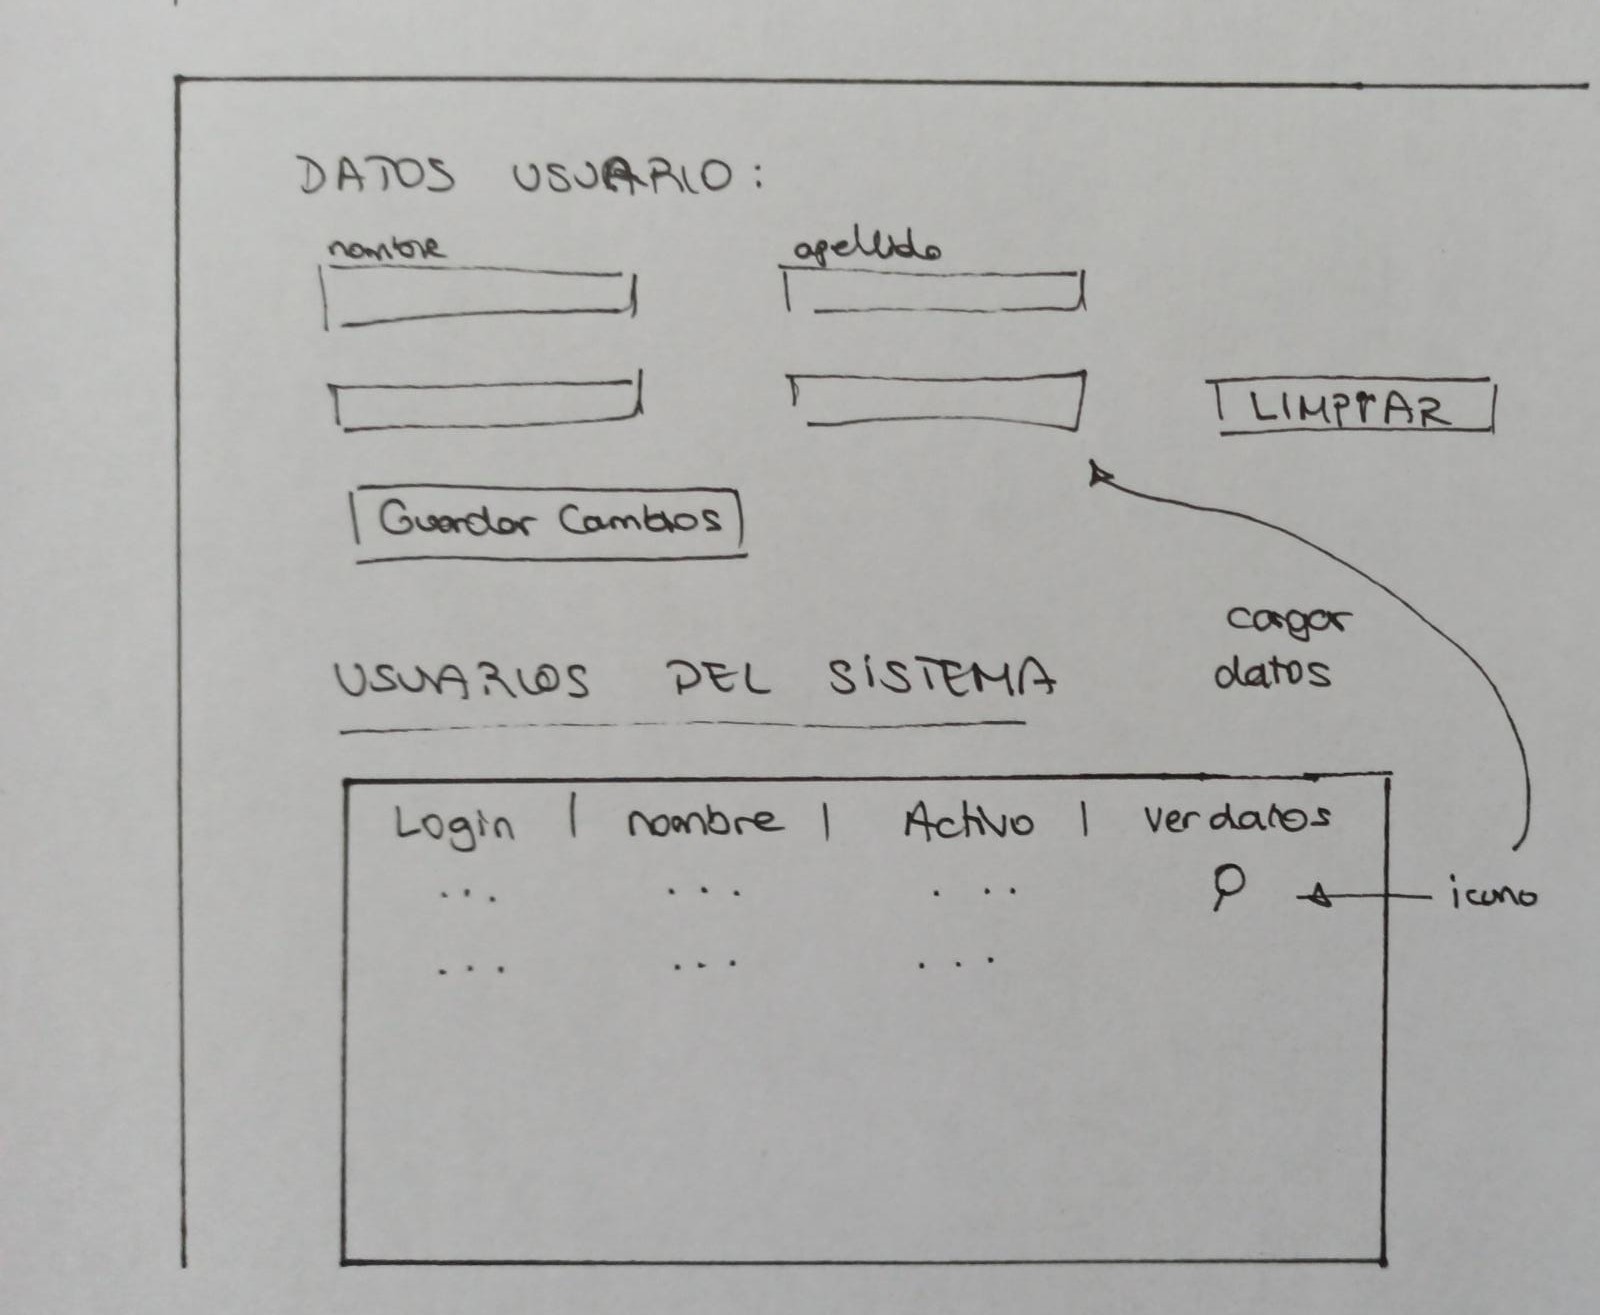 DATOS USUARIO:
nombre apellido
LIMPIAR
Guardar Cambios
cargar
datos
USUARIOS DEL SISTEMA
Login | nombre | Activo | ver datos
... ... ...
icono
... ... ...